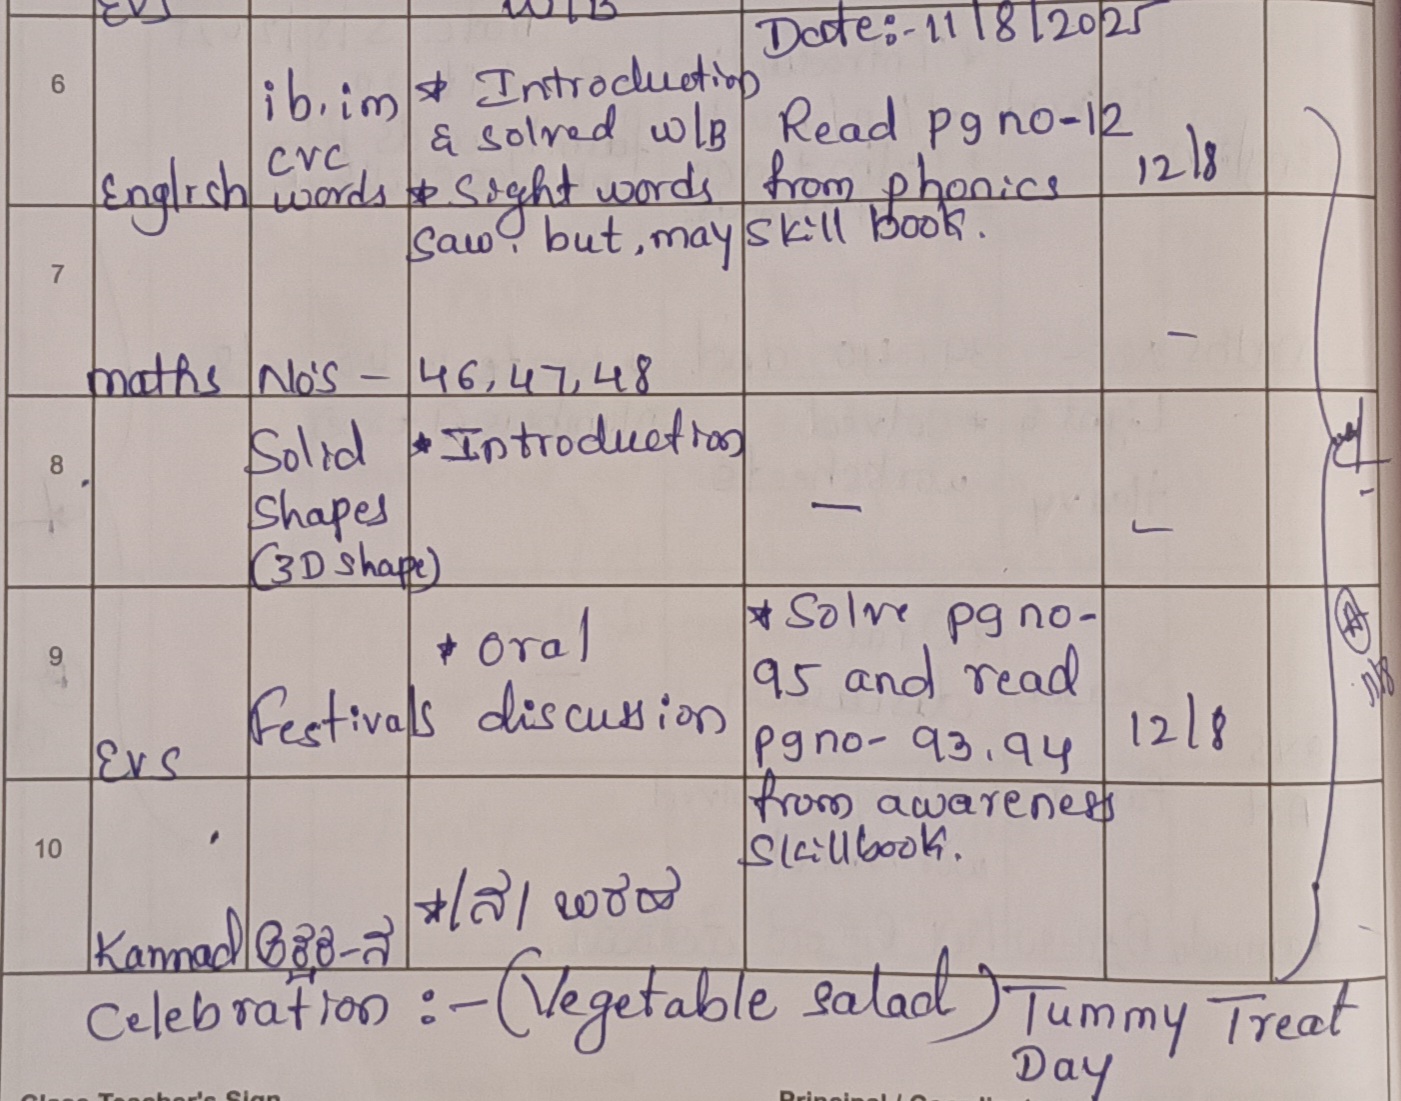 EVS W/B
Date:-11/8/2025
6
ib, im
cvc
words
* Introduction
& solved W/B
* Sight words
saw, but, may
Read pg no-12
from phonics
skill book.
12/8
English
7
maths No's - 46, 47, 48 -
8
Solid
Shapes
(3D shape)
* Introduction
- -
9
EVS
Festivals
* oral
discussion
* Solve pg no-
95 and read
pg no- 93, 94
from awareness
skillbook.
12/8
11/8
10
Kannad
Celebration :- (Vegetable salad) Tummy Treat
Day
Class Teacher's Sign